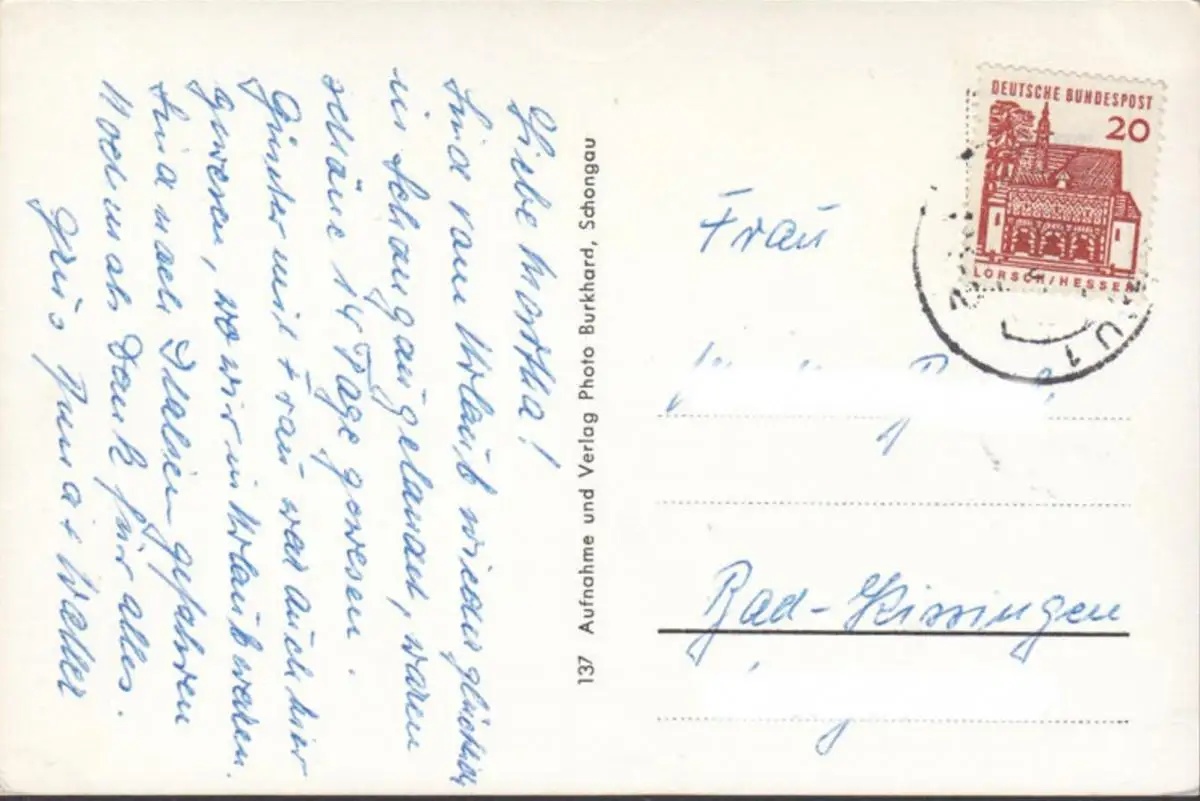 Liebe Martha!
Sind vom Urlaub wieder glücklich
in Schongau gelandet, waren
schöne 14 Tage gewesen.
Günter mit Frau war auch hier
gewesen, wo wir in Urlaub waren.
Sind nach Italien gefahren
Nochmals Dank für alles.
Gruß u Walter
137 Aufnahme und Verlag Photo Burkhard, Schongau
DEUTSCHE BUNDESPOST
20
LORSCH/HESSEN
Frau
Bad-Kissingen